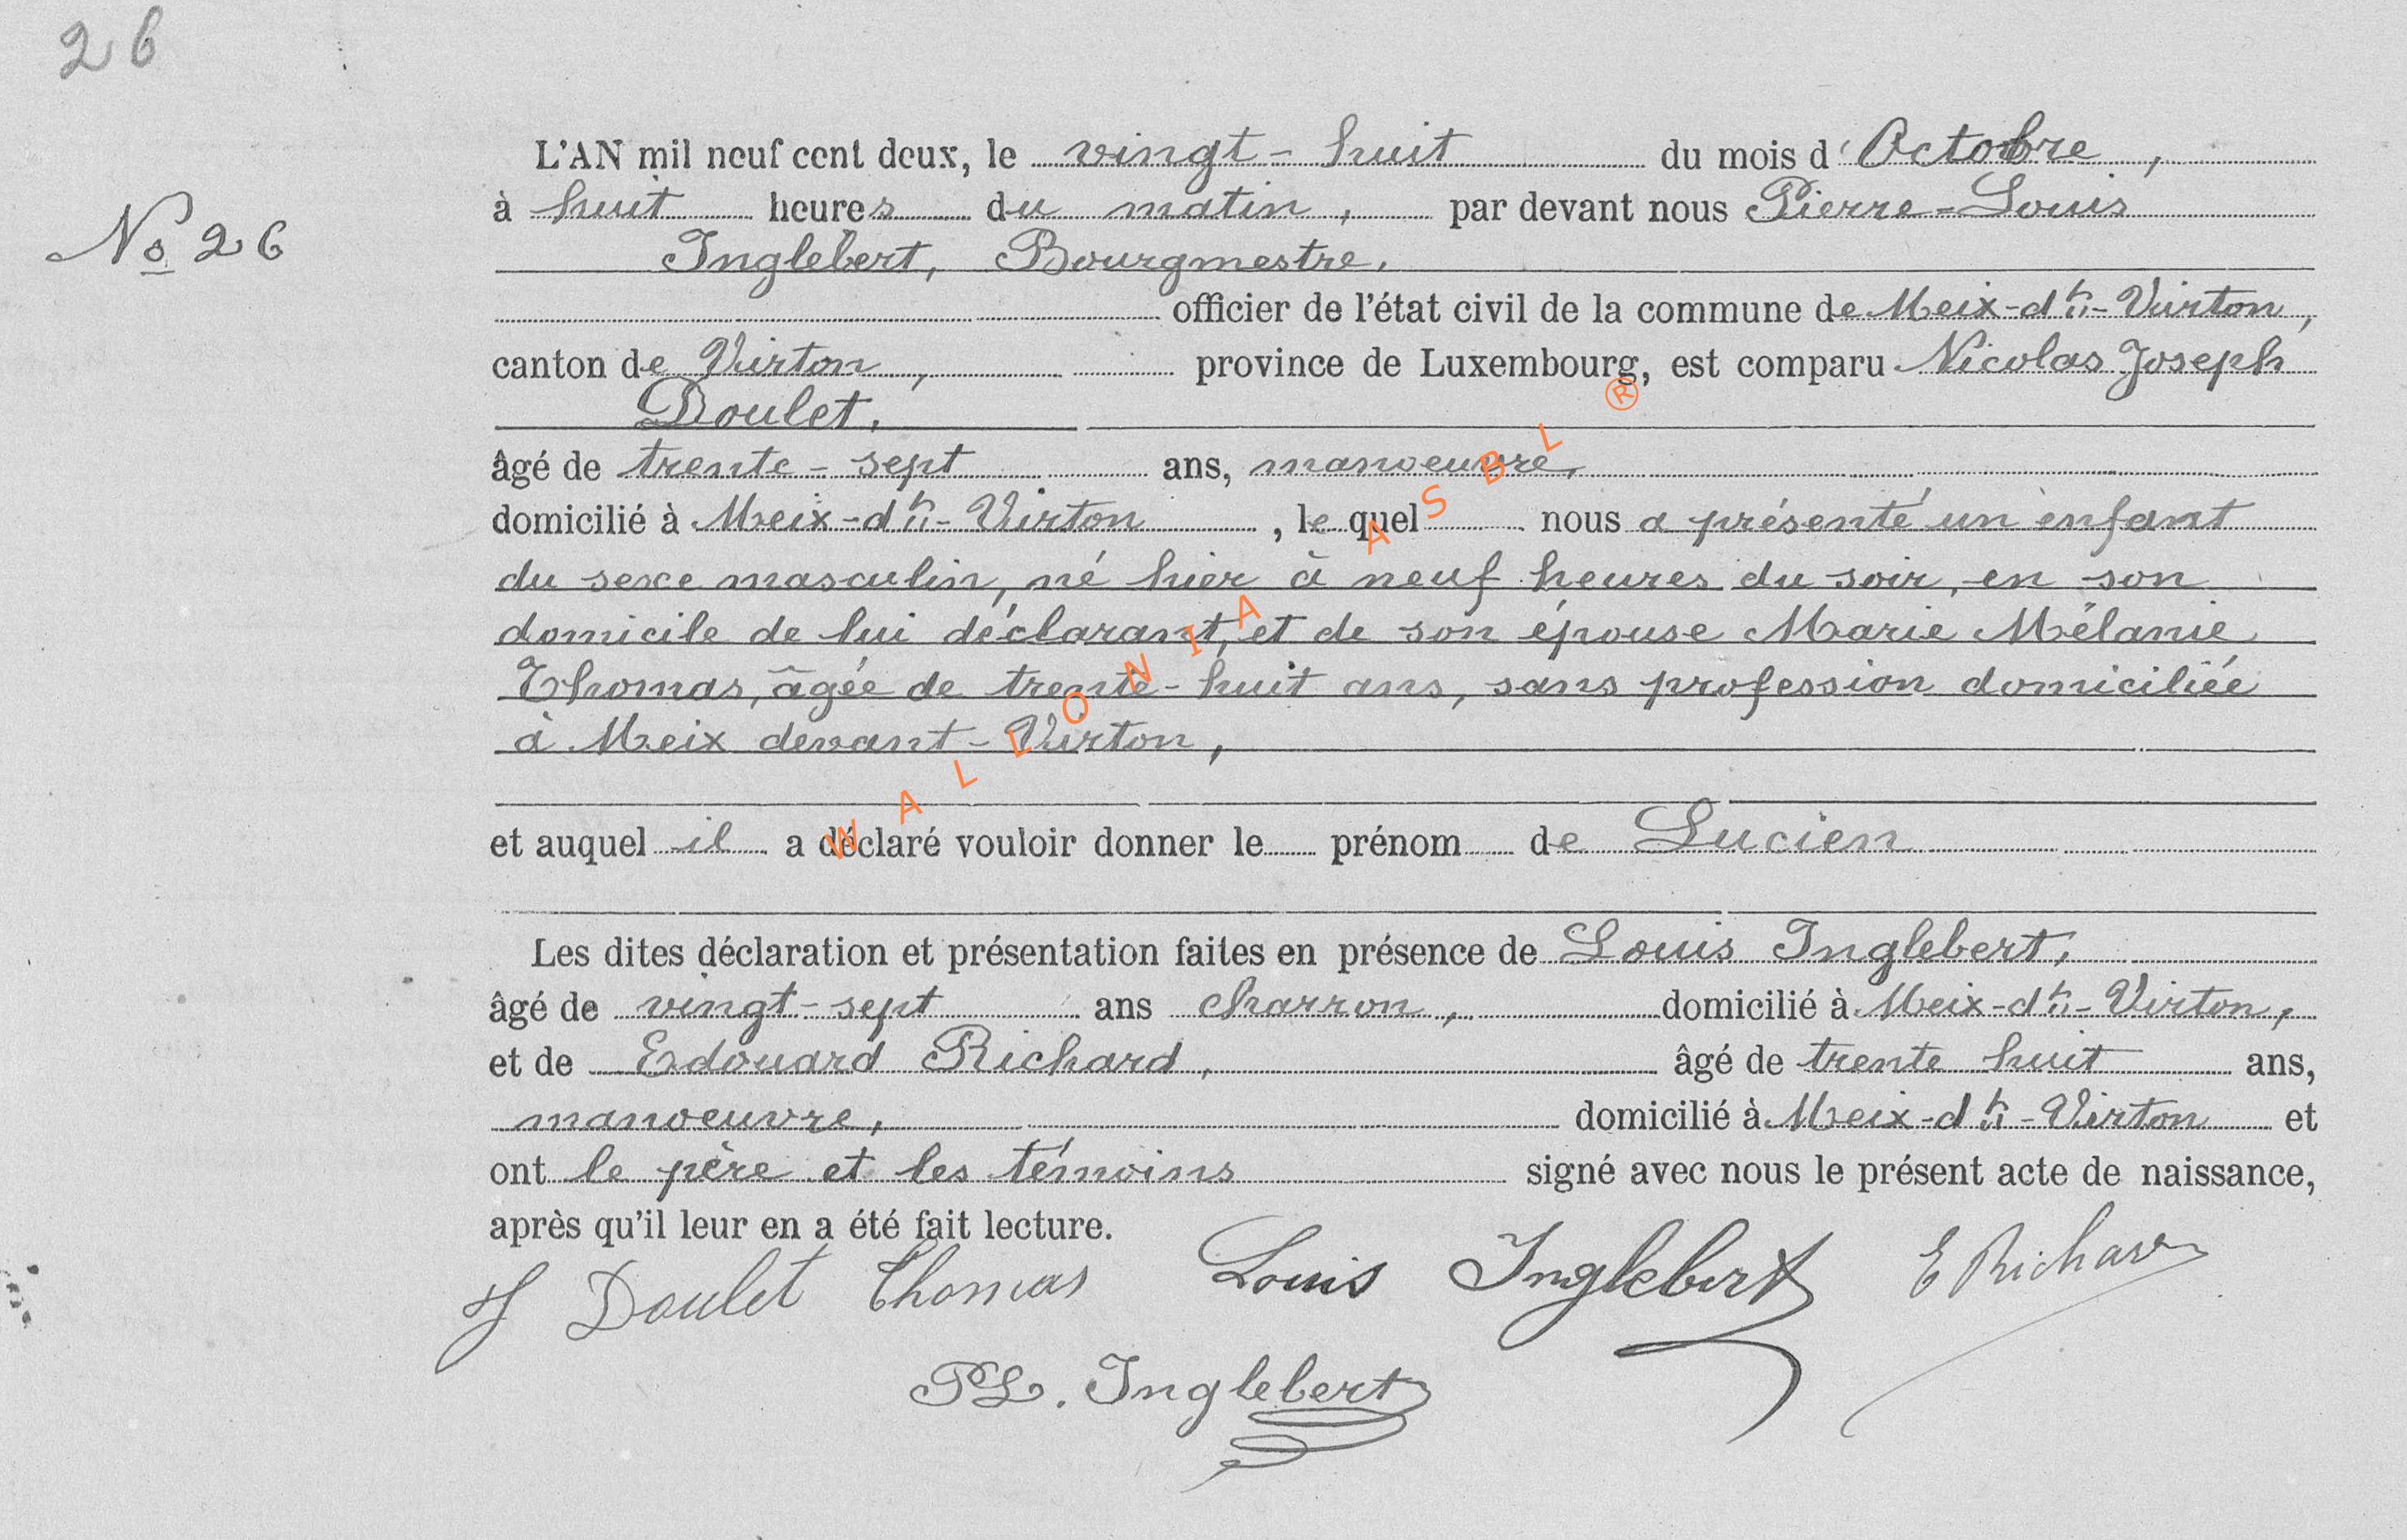 26
L'AN mil neuf cent deux, le vingt-huit du mois d'Octobre,
à huit heures du matin, par devant nous Pierre-Louis
No 26
Inglebert, Bourgmestre.
officier de l'état civil de la commune de Meix-dt-Virton,
canton de Virton, province de Luxembourg, est comparu Nicolas Joseph
Doulet,
âgé de trente-sept ans, manoeuvre,
domicilié à Meix-dt-Virton, le quel nous a présenté un enfant
du sexe masculin, né hier à neuf heures du soir, en son
domicile de lui déclarant, et de son épouse Marie Mélanie
Thomas, âgée de trente-huit ans, sans profession domiciliée
à Meix devant-Virton,
et auquel il a déclaré vouloir donner le prénom de Lucien
Les dites déclaration et présentation faites en présence de Louis Inglebert,
âgé de vingt-sept ans charron, domicilié à Meix-dt-Virton,
et de Edouard Richard, âgé de trente huit ans,
manoeuvre, domicilié à Meix-dt-Virton et
ont le père et les témoins signé avec nous le présent acte de naissance,
après qu'il leur en a été fait lecture.
Doulet Thomas Louis Inglebert E Richard
PL. Inglebert
WALLONIA ASBL ®